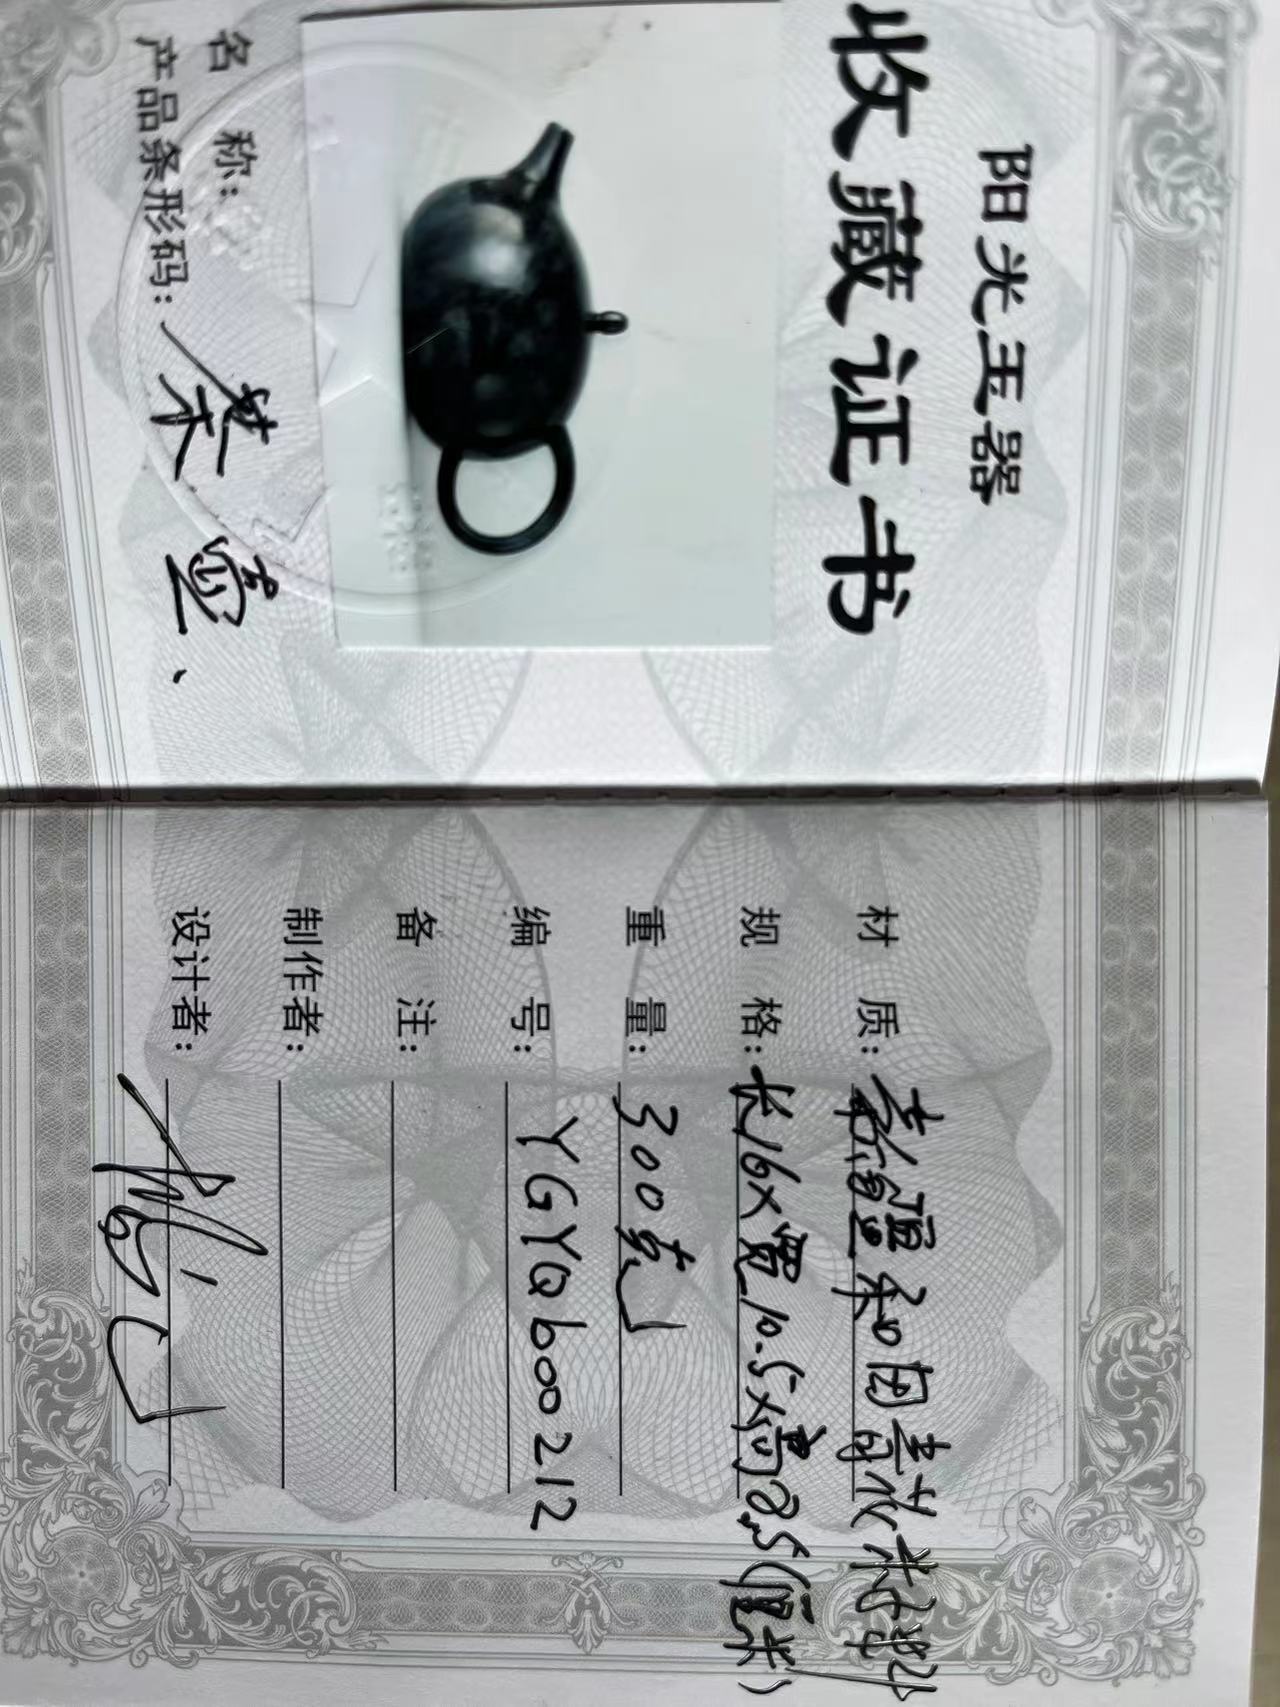 阳光玉器
收藏证书
名 称: 茶壶、
产品条形码:
材 质: 新疆和田青花籽料
规 格: 长16×宽10.5×高8.5(厘米)
重 量: 300克
编 号: YGYQ600212
备 注:
制作者:
设计者: